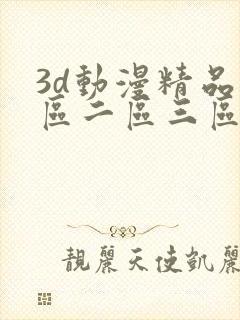 3d動漫精品
區二區三區
靚麗天使凱麗